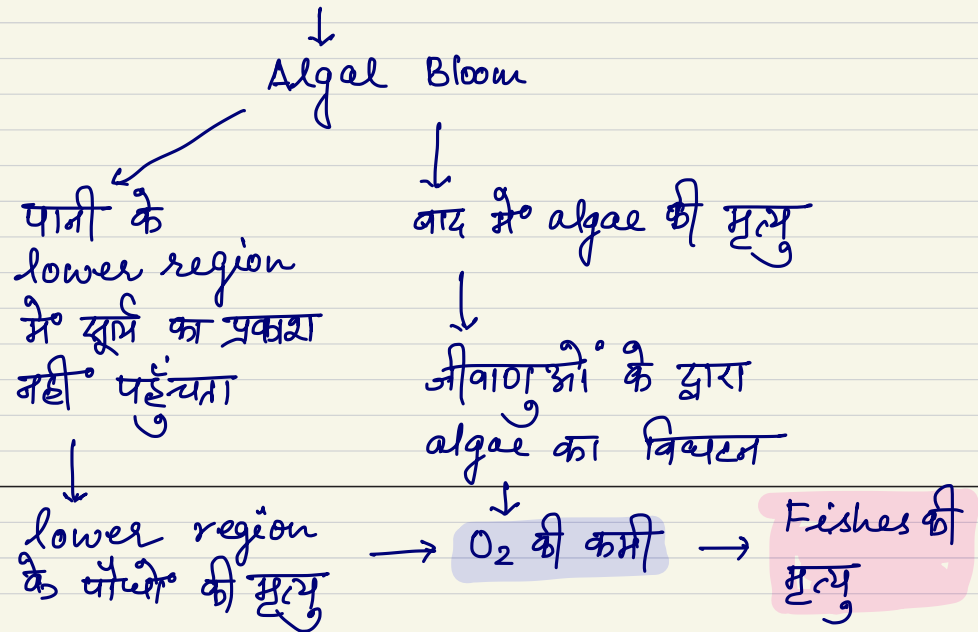 Algal Bloom
पानी के
lower region
में सूर्य का प्रकाश
नहीं पहुँचता
lower region
के पौधों की मृत्यु
बाद में algae की मृत्यु
जीवाणुओं के द्वारा
algae का विघटन
O₂ की कमी
Fishes की
मृत्यु